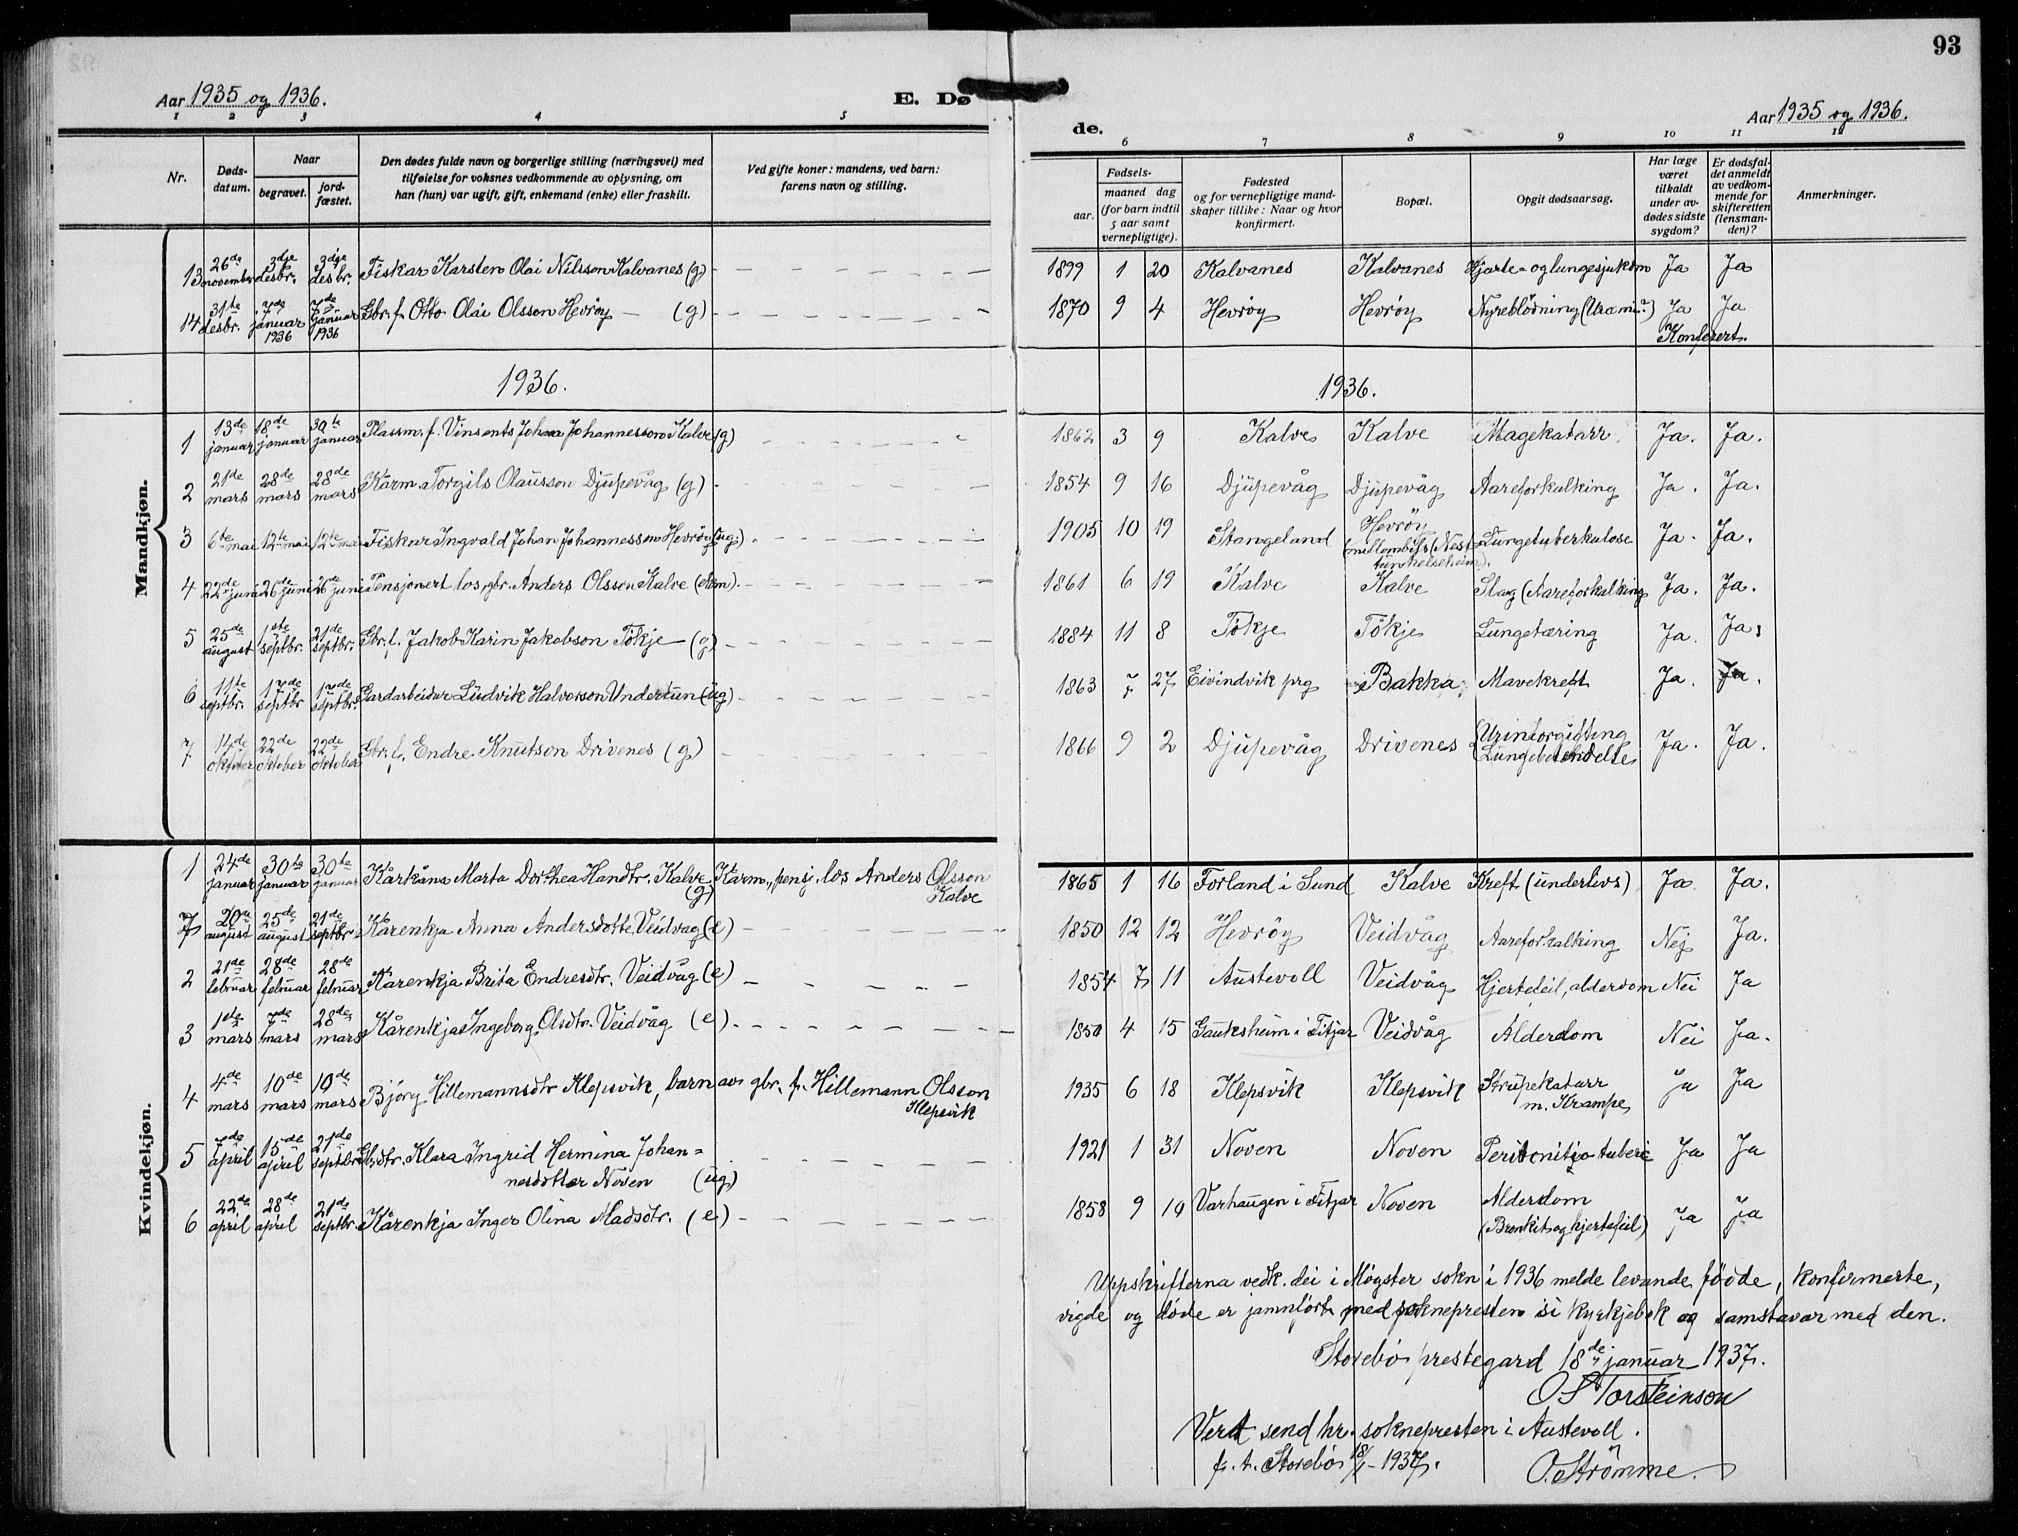 93
Aar 1935 og 1936.
E. Dø
de.
Aar 1935 og 1936.
1 2 3 4 5
6 7 8 9 10 11 12
Nr.
Døds-datum.
Naar
begravet.
jord-fæstet.
Den dødes fulde navn og borgerlige stilling (næringsvei) med
tilføielse for voksnes vedkommende av oplysning, om
han (hun) var ugift, gift, enkemand (enke) eller fraskilt.
Ved gifte koner: mandens, ved barn:
farens navn og stilling.
Fødsels-
aar.
maaned dag
(for barn indtil
5 aar samt
vernepligtige).
Fødested
og for vernepligtige mand-
skaper tillike: Naar og hvor
konfirmert.
Bopæl.
Opgit dødsaarsag.
Har læge
været
tilkaldt
under av-
dødes sidste
sygdom?
Er dødsfal-
det anmeldt
av vedkom-
mende for
skifteretten
(lensman-
den)?
Anmerkninger.
Mandkjøn.
13 26de november 3dje desbr. 3dje desbr. Fiskar Karsten Olai Nilsson Kalvanes (g) 1899 1 20 Kalvanes Kalvanes Hjarte- og lungesjukdom Ja Ja
14 31te desbr. 7de januar 1936 7de januar 1936 Gbr. f. Otto Olai Olsson Hevrøy (g) 1870 9 4 Hevrøy Hevrøy Nyreblødning (Uræmi?) Ja Ja
Konferert.
1936.
1936.
1 13de januar 18de januar 30te januar Plassm. f. Vinsents Johan Johannesson Kalve (g) 1862 3 9 Kalve Kalve Magekatarr. Ja. Ja.
2 21de mars 28de mars 28de mars Kårm. Torgils Olausson Djupevåg (g) 1854 9 16 Djupevåg Djupevåg Aareforkalking Ja. Ja.
3 6te mai 12te mai 12te mai Fiskar Ingvald Johan Johannesson Hevrøy (ug.) 1905 10 19 Stangeland Hevrøy (mellombils (Nest-tun helseheim). Lungetuberkulose Ja. Ja.
4 22de juni 26de juni 26de juni Pensjonert los, gbr. Anders Olsson Kalve (ekm). 1861 6 19 Kalve Kalve Slag (Aareforkalking Ja. Ja.
5 25de august 1ste septbr. 21de septbr. Gbr. f. Jakob Karin Jakobson Tökje (g) 1884 11 8 Tökje Tökje Lungetæring Ja. Ja.
6 11te septbr. 17de septbr 17de septbr. Gardarbeidar Ludvik Halvorson Undertun (ug) 1863 7 27 Eivindvik prg i Bakka. Mavekreft Ja. Ja.
7 14de oktober 22de oktober 22de oktober Gbr. f. Endre Knutson Drivenes (g) 1866 9 2 Djupevåg Drivenes (Urinforgifting (Lungebetendelse Ja. Ja.
Kvindekjøn.
1 24de januar 30te januar 30te januar Kårkåna Marta Dorthea Hansdtr. Kalve (g) Kårm., pensj. los Anders Olsson Kalve 1865 1 16 Forland i Sund Kalve Kreft (underlivs) Ja. Ja.
7 20de august 25de august 21de septbr. Kårenkja Anna Andersdotte Veidvåg (e) 1850 12 12 Hevrøy Veidvåg Aareforkalking Nei Ja.
2 21de februar 28de februar 28de februar Kårenkja Brita Endresdtr. Veidvåg (e) 1854 7 11 Austevoll Veidvåg Hjertefeil, alderdom Nei Ja
3 1ste mars 7de mars 28de mars Kårenkja Ingeborg Olsdtr. Veidvåg (e) 1850 4 15 Gauksheim i Fitjar Veidvåg Alderdom Nei Ja.
4 4de mars 10de mars 10de mars Bjørg Hillemannsdtr Klepsvik, barn av gbr. f. Hillemann Olsson Klepsvik 1935 6 18 Klepsvik Klepsvik Strupekatarr m. Krampe Ja Ja
5 7de april 15de april 21de septbr Gbrdtr. Klara Ingrid Hermina Johan-
nesdotter Noven (ug) 1921 1 31 Noven Noven Peritonitis tuberc Ja Ja
6 22de april 28de april 21de septbr. Kårenkja Inger Olina Madsdtr. (e) 1858 9 19 Varhaugen i Fitjar Noven Alderdom (Bronkit og hjertefeil) Ja Ja
Uppskrifterna vedk. dei i Møgster sokn i 1936 melde levande födde, konfirmerte,
vigde og döde er jamnförte med soknepresten si kyrkjebok og samstavar med den.
Storebö prestegard 18de januar 1937.
O S Torsteinson
Verd send hr. soknepresten i Austevoll.
p. t. Storebö 18/1 - 1937.
O. Strömme.